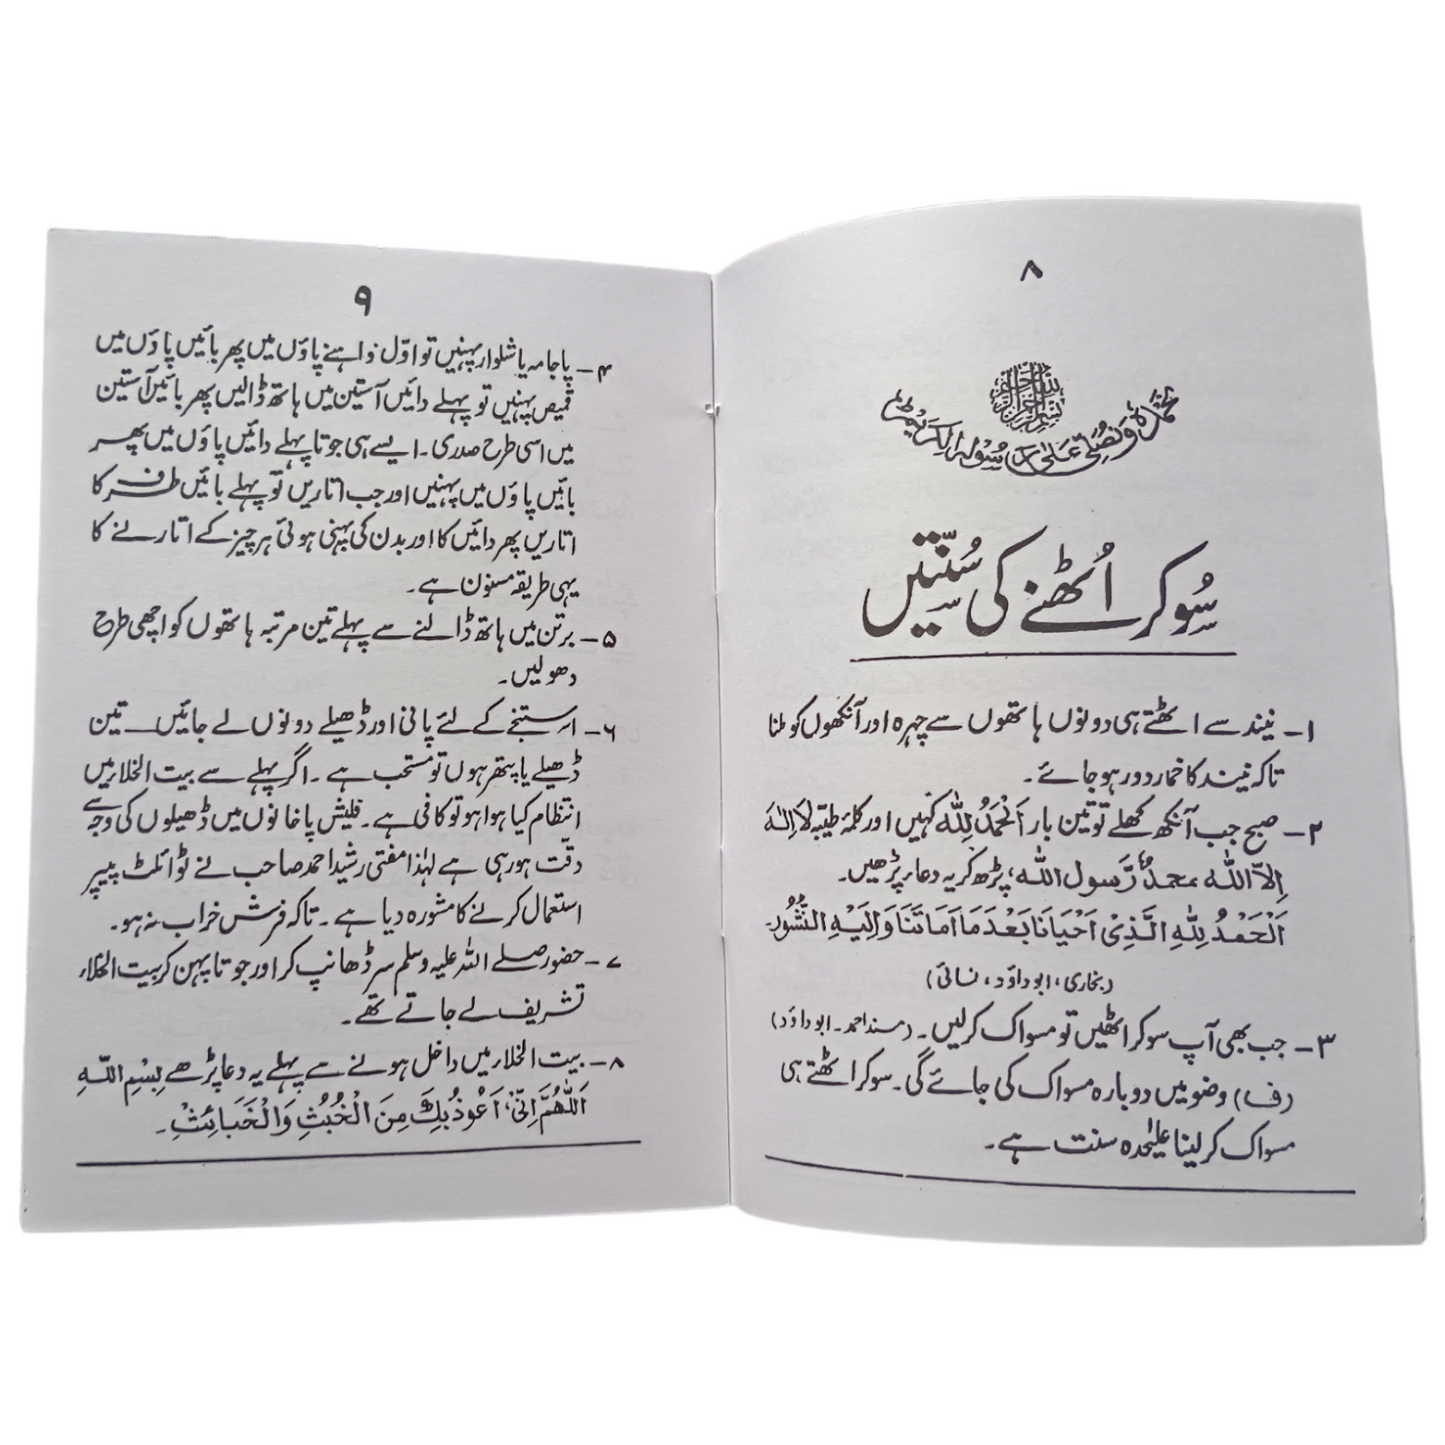 ۸
بسم اللہ الرحمن الرحیم
نحمدہ ونصلی علیٰ رسولہ الکریم
سُو کر اُٹھنے کی سُنّتیں
۱- نیند سے اٹھتے ہی دونوں ہاتھوں سے چہرہ اور آنکھوں کو ملنا
تاکہ نیند کا خمار دور ہو جائے۔
۲- صبح جب آنکھ کھلے تو تین بار اَلْحَمْدُ لِلّٰہ کہیں اور کلمۂ طیّبہ لَا اِلٰہَ
اِلَّا اللہ محمدٌ رَّسول اللہ، پڑھ کر یہ دعا پڑھیں۔
اَلْحَمْدُ لِلّٰہِ الَّذِیْ اَحْیَانَا بَعْدَ مَا اَمَاتَنَا وَاِلَیْہِ النُّشُوْر۔
(بخاری، ابوداؤد، نسائی)
۳- جب بھی آپ سو کر اٹھیں تو مسواک کرلیں۔ (مسند احمد۔ ابوداؤد)
(ف) وضو میں دوبارہ مسواک کی جائے گی۔ سو کر اٹھتے ہی
مسواک کر لینا علیٰحدہ سنت ہے۔
۹
۴- پاجامہ یا شلوار پہنیں تو اوّل داہنے پاؤں میں پھر بائیں پاؤں میں
قمیص پہنیں تو پہلے دائیں آستین میں ہاتھ ڈالیں پھر بائیں آستین
میں اسی طرح صدری۔ ایسے ہی جوتا پہلے دائیں پاؤں میں پھر
بائیں پاؤں میں پہنیں اور جب اتاریں تو پہلے بائیں طرف کا
اتاریں پھر دائیں کا اور بدن کی پہنی ہوئی ہر چیز کے اتارنے کا
یہی طریقہ مسنون ہے۔
۵- برتن میں ہاتھ ڈالنے سے پہلے تین مرتبہ ہاتھوں کو اچھی طرح
دھولیں۔
۶- استنجے کے لئے پانی اور ڈھیلے دونوں لے جائیں۔ تین
ڈھیلے یا پتھر ہوں تو مستحب ہے۔ اگر پہلے سے بیت الخلاء میں
انتظام کیا ہوا ہو تو کافی ہے۔ فلیش پاخانوں میں ڈھیلوں کی وجہ سے
دقّت ہو رہی ہے لہٰذا مفتی رشید احمد صاحب نے ٹوائلٹ پیپر
استعمال کرنے کا مشورہ دیا ہے۔ تاکہ فرش خراب نہ ہو۔
۷- حضور صلے اللہ علیہ وسلم سر ڈھانپ کر اور جوتا پہن کر بیت الخلاء
تشریف لے جاتے تھے۔
۸- بیت الخلاء میں داخل ہونے سے پہلے یہ دعا پڑھے بِسْمِ اللّٰہِ
اَللّٰھُمَّ اِنِّیْ اَعُوْذُ بِکَ مِنَ الْخُبُثِ وَالْخَبَائِثِ۔